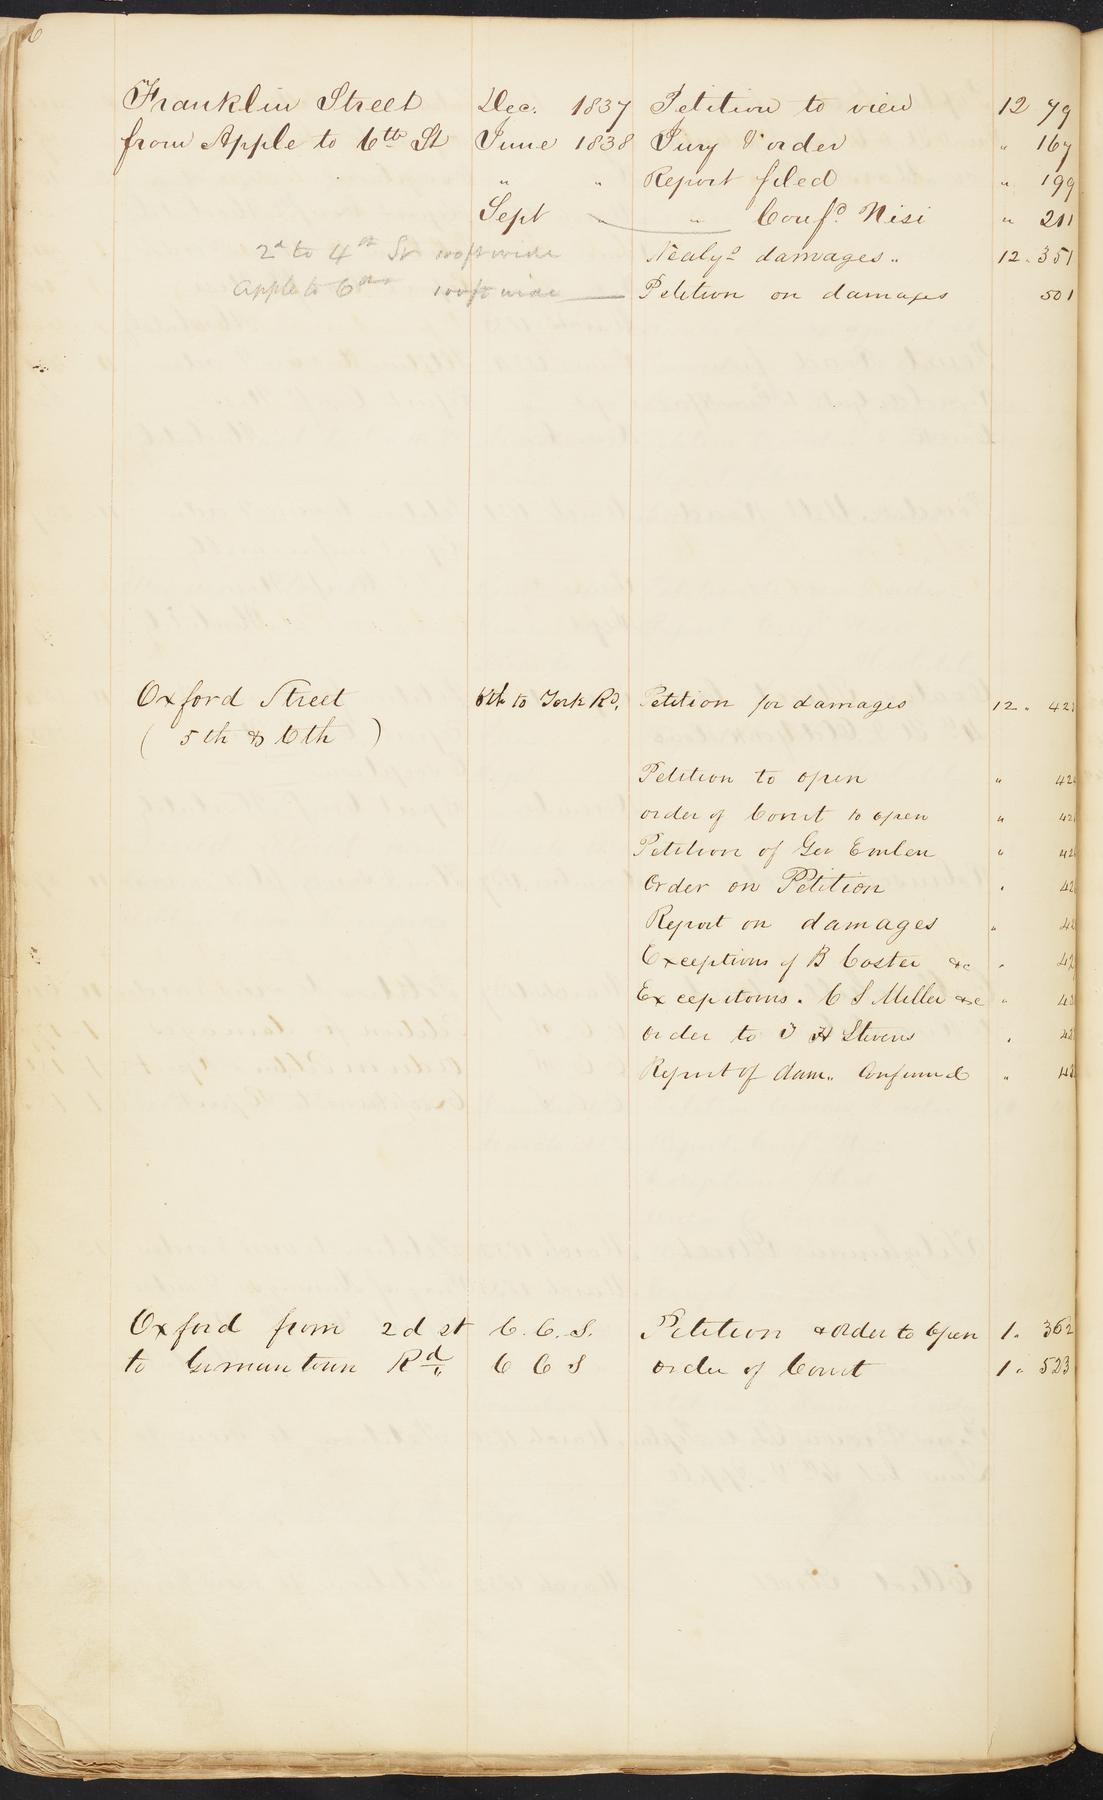 6
Franklin Street Dec. 1837 Petition to view 12 79
from Apple to 6th St June 1838 Jury & order " 167
" " Report filed " 199
Sept " Conf.d Nisi " 211
2d to 4th St 100 ft wide Nealys damages " 12. 351
Apple to 6th 100 ft wide Petition on damages 501
Oxford Street 6th to York Rd. Petition for damages 12.
( 5th & 6th )
Petition to open "
order of Court to open "
Petition of Geo Emlen "
Order on Petition "
Report on damages "
Exceptions of B Coster &c "
Exceptions. C S Miller &c "
order to J H Stevens "
Report of dam.. Confirmed "
Oxford from 2d st C. C. S. Petition & order to Open 1. 362
to Germantown Rd. C C S order of Court 1. 523